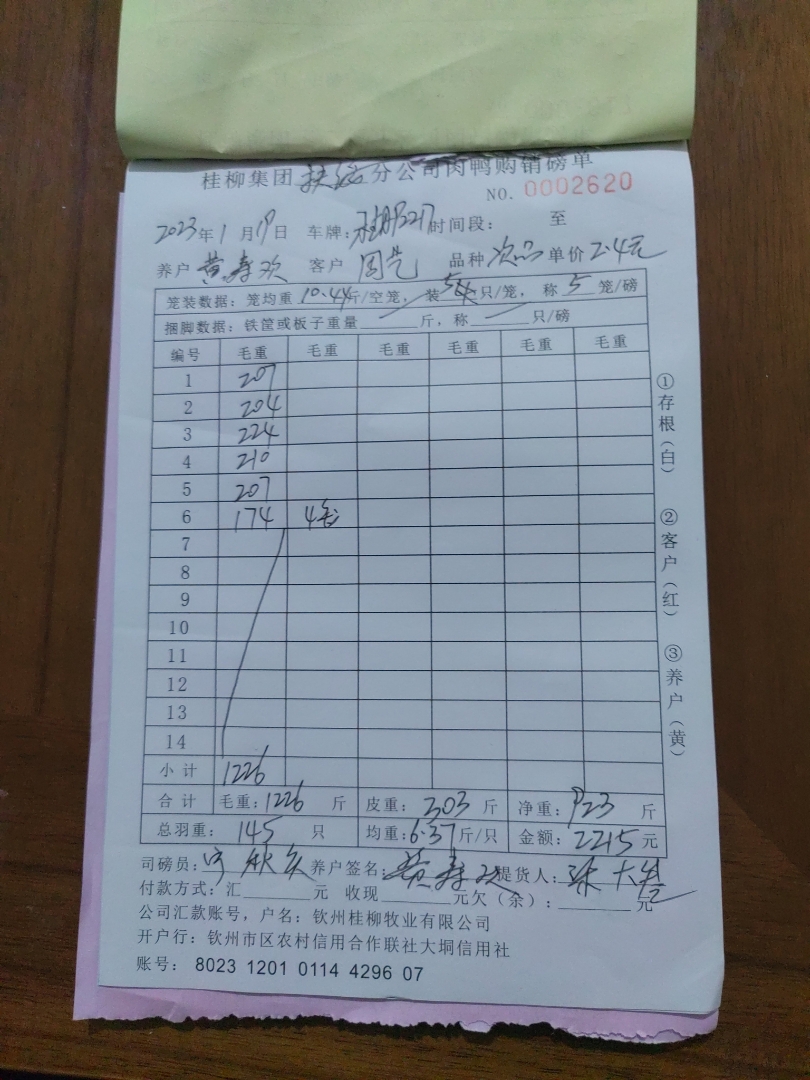 桂柳集团 分公司肉鸭购销磅单
NO. 0002620
2023年1月19日 车牌: 时间段: 至
养户 黄寿欢 客户 周 品种 次品 单价 2.4元
笼装数据: 笼均重 10.44斤/空笼, 装5只/笼, 称5笼/磅
捆脚数据: 铁筐或板子重量 斤, 称 只/磅
编号 毛重 毛重 毛重 毛重 毛重 毛重
1 207
2 204
3 224
4 210
5 207
6 174 4毛
7
8
9
10
11
12
13
14
小计 1226
合计 毛重: 1226 斤 皮重: 303 斤 净重: 923 斤
总羽重: 145 只 均重: 6.37斤/只 金额: 2215元
司磅员: 养户签名: 黄寿欢 提货人:
付款方式: 汇 元 收现 元欠(余): 元
公司汇款账号, 户名: 钦州桂柳牧业有限公司
开户行: 钦州市区农村信用合作联社大垌信用社
账号: 8023 1201 0114 4296 07
①存根(白) ②客户(红) ③养户(黄)